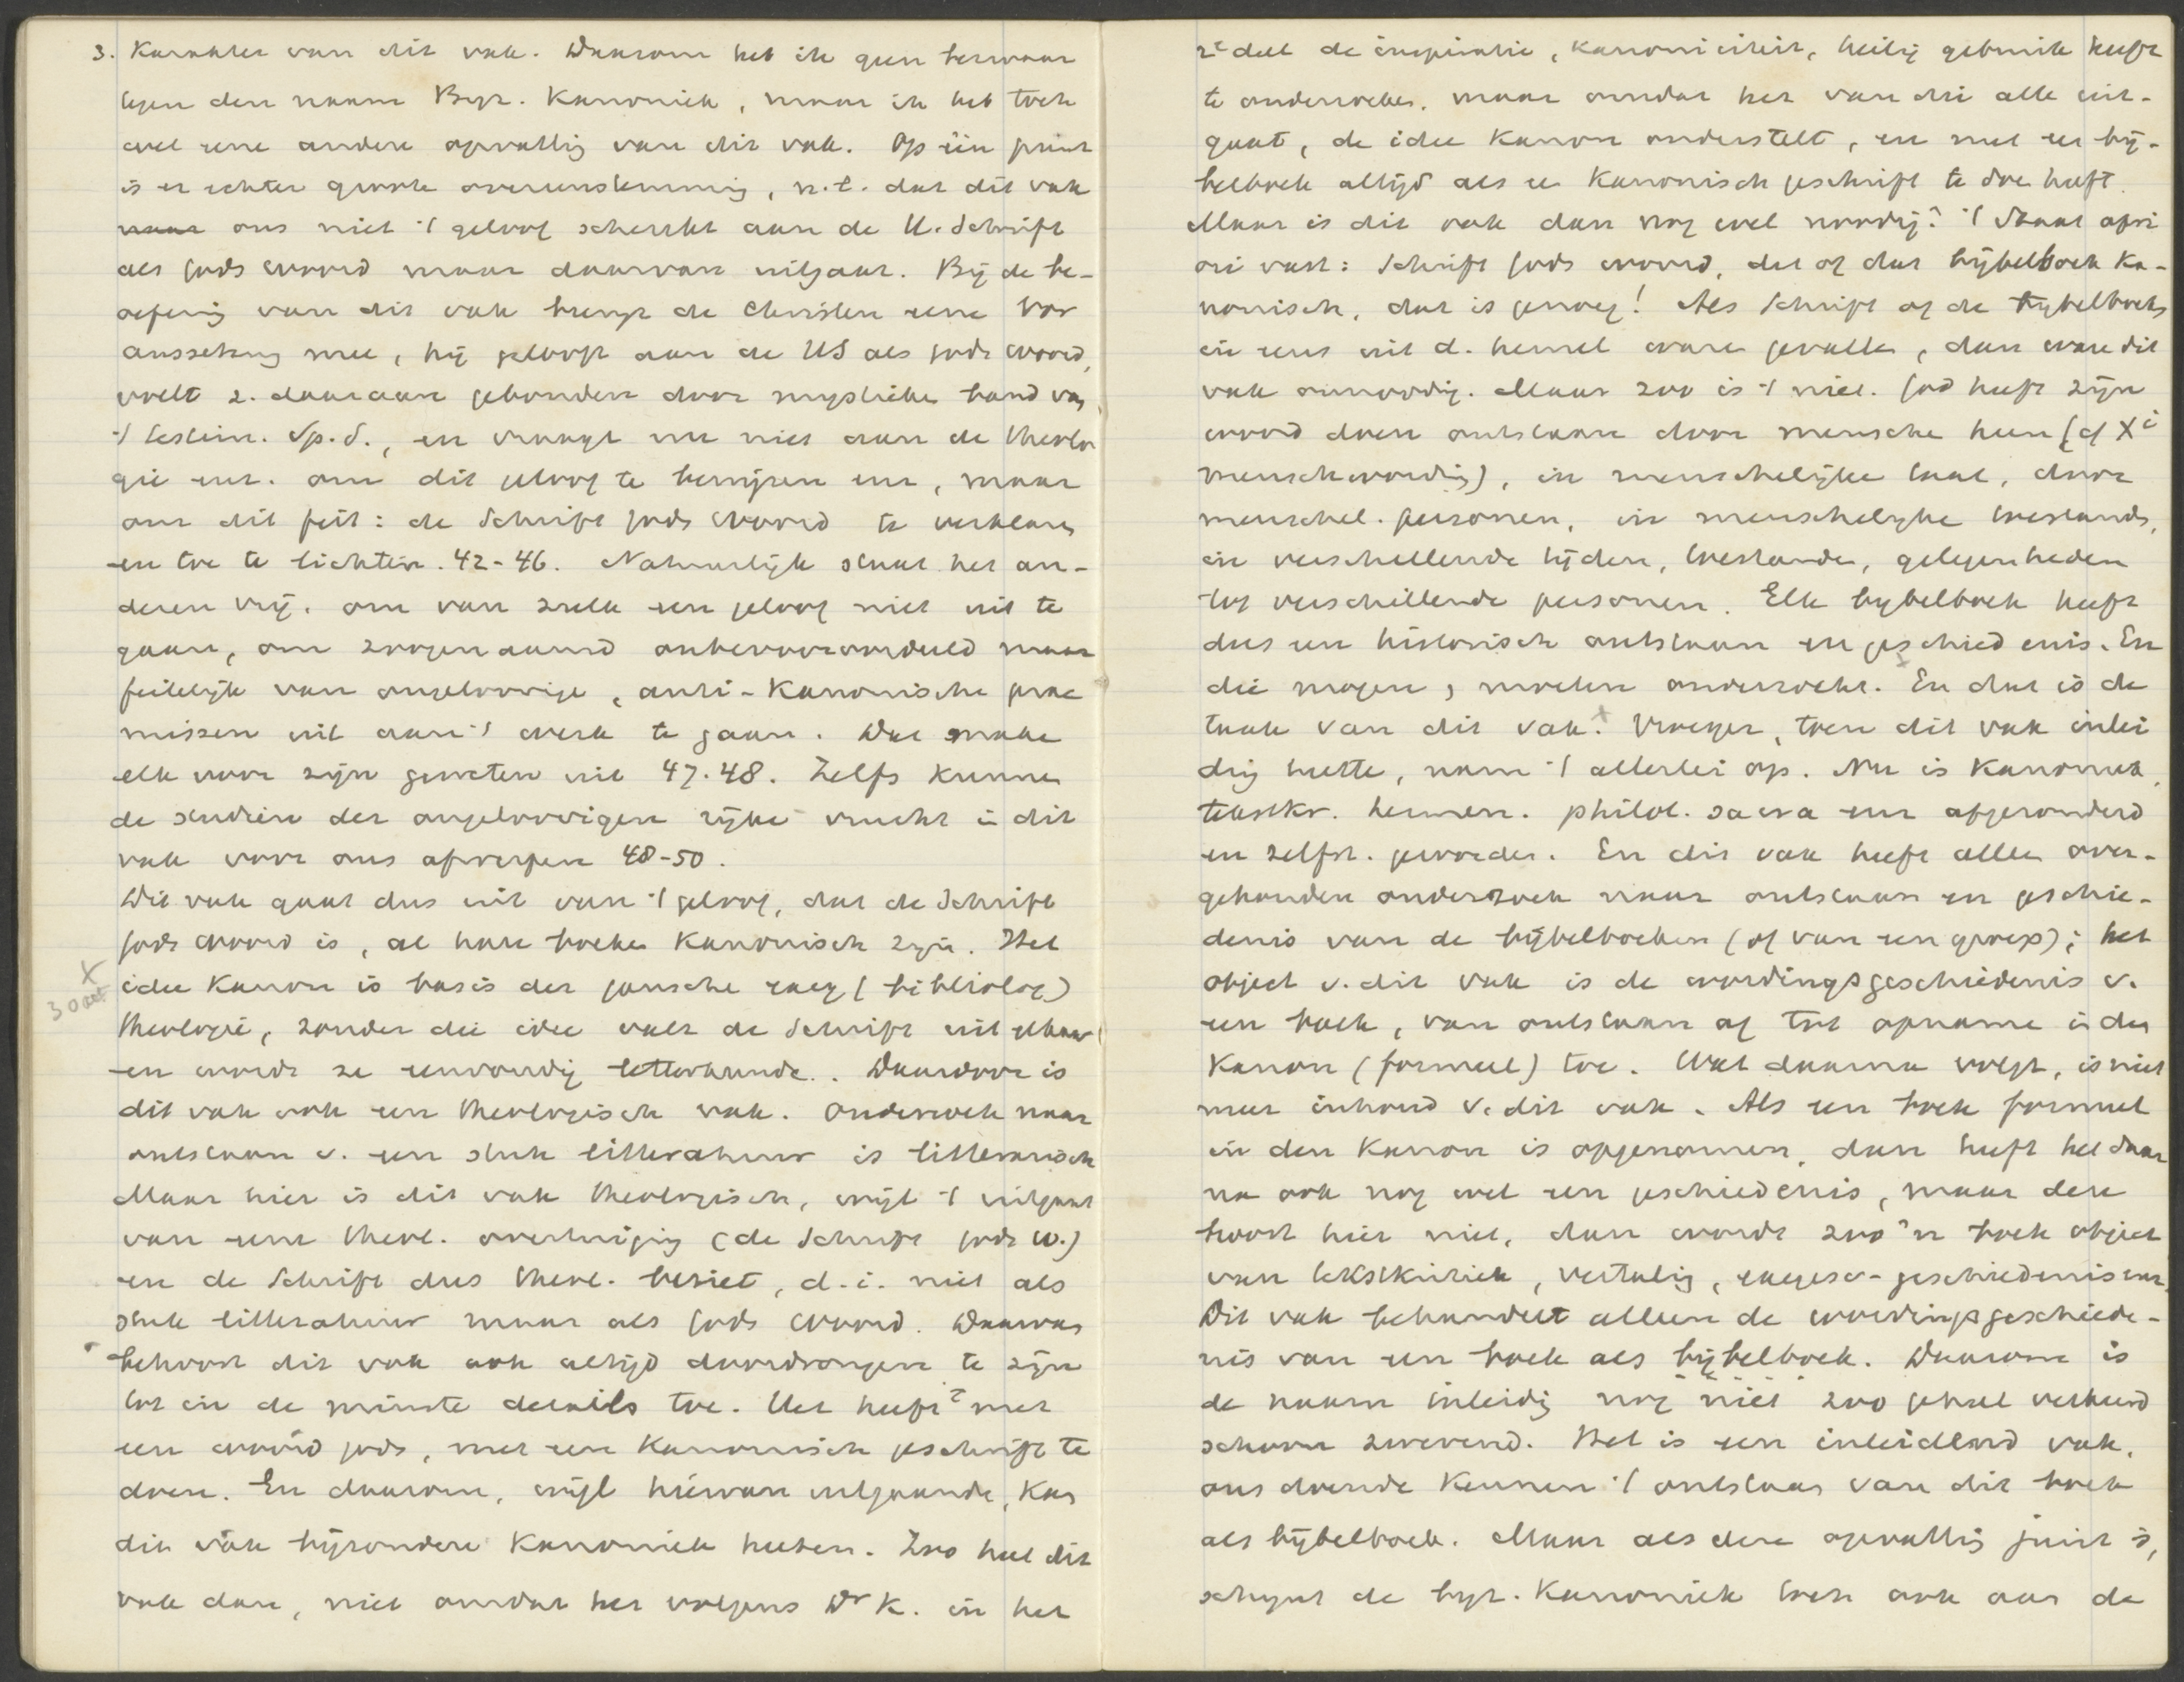 3. Karakter van dit vak. Daarom heb ik geen bezwaar
tegen den naam Byz. Kanoniek, maar ik heb toch
wel eene andere opvatting van dit vak. Op één punt
is er echter groote overeenstemming, n.l. dat dit vak
ons niet 't geloof schenkt aan de H. Schrift
als Gods woord maar daarvan uitgaat. Bij de be-
oefening van dit vak brengt de Christen eene voor
onderstelling mee, hij gelooft aan de HS als Gods woord,
voelt z. daaraan gebonden door mystieke band van
't testim. Sp. S., en vraagt nu niet aan de theolo
gie enz. om dit geloof te bewijzen enz, maar
om dit feit: de Schrift Gods woord te verklaren
en toe te lichten. 42-46. Natuurlijk staat het an-
deren vrij, om van zulk een geloof niet uit te
gaan, om zoogenaamd onbevooroordeeld maar
feitelijk van ongeloovige, anti-Kanonische prae
missen uit aan 't werk te gaan. Dat make
elk voor zijn geweten uit 47.48. Zelfs kunnen
de studiën der ongeloovigen rijke vrucht in dit
vak voor ons afwerpen 48-50.
Dit vak gaat dus uit van 't geloof, dat de Schrift
Gods woord is, al hare boeken Kanonisch zijn. Het
idee Kanon is basis der gansche exeg (bibliolog)
theologie, zonder die idee valt de Schrift uit elkaar
en wordt ze eenvoudig letterkunde. Daardoor is
dit vak ook een theologisch vak. Onderzoek naar
ontstaan v. een stuk litteratuur is litterarisch
Maar hier is dit vak theologisch, wijl 't uitgaat
van eene theol. overtuiging (de Schrift Gods w.)
en de Schrift dus theol. beziet, d.i. niet als
stuk litteratuur maar als Gods woord. Daarvan
behoort dit vak ook altijd doordrongen te zijn
tot in de minste details toe. Het heeft met
een woord Gods, met een Kanonisch geschrift te
doen. En daarom, wijl hiervan uitgaande, kan
dit vak bijzondere Kanoniek heeten. Zoo heet dit
vak dan, niet omdat het volgens Dr K. in het
2e deel de inspiratie, kanoniciteit, heilig gebruik heeft
te onderzoeken, maar omdat het van dit alle uit-
gaat, de idee Kanon onderstelt, en met een bij-
belboek altijd als een Kanonisch geschrift te doen heeft.
Maar is dit vak dan nog wel noodig? 't Staat a pri
ori vast: Schrift Gods woord, dit of dat bijbelboek Ka-
nonisch, dat is genoeg! Als Schrift of de bijbelboeken
in eens uit d. hemel ware gevallen, dan ware dit
vak onnoodig. Maar zoo is 't niet. God heeft zijn
woord doen ontstaan door menschen heen (cf Xi
menschwording), in menschelijke taal, door
menschel. personen, in menschelijke toestanden,
in verschillende tijden, toestanden, gelegenheden
tot verschillende personen. Elk bijbelboek heeft
dus een historisch ontstaan en geschiedenis. En
die mogen, moeten onderzocht. En dat is de
taak van dit vak. Vroeger, toen dit vak inlei
ding heette, nam 't allerlei op. Nu is Kanoniek,
tekstkr. hermen. philol. sacra enz afgezonderd
en zelfst. geworden. En dit vak heeft alleen over-
gehouden onderzoek naar ontstaan en geschie-
denis van de bijbelboeken (of van een groep); het
object v. dit vak is de wordingsgeschiedenis v.
een boek, van ontstaan af tot opname in den
Kanon (formeel) toe. Wat daarna volgt, is niet
meer inhoud v. dit vak. Als een boek formeel
in den Kanon is opgenomen, dan heeft het daar
na ook nog wel een geschiedenis, maar deze
hoort hier niet, dan wordt zoo'n boek object
van tekstkritiek, vertaling, exegese-geschiedenis enz.
Dit vak behandelt alleen de wordingsgeschiede-
nis van een boek als bijbelboek. Daarom is
de naam inleiding nog niet zoo geheel verkeerd
schoon zwevend. Het is een inleidend vak,
ons doende kennen 't ontstaan van dit boek
als bijbelboek. Maar als deze opvatting juist is,
schijnt de byz. Kanoniek toch ook aan de